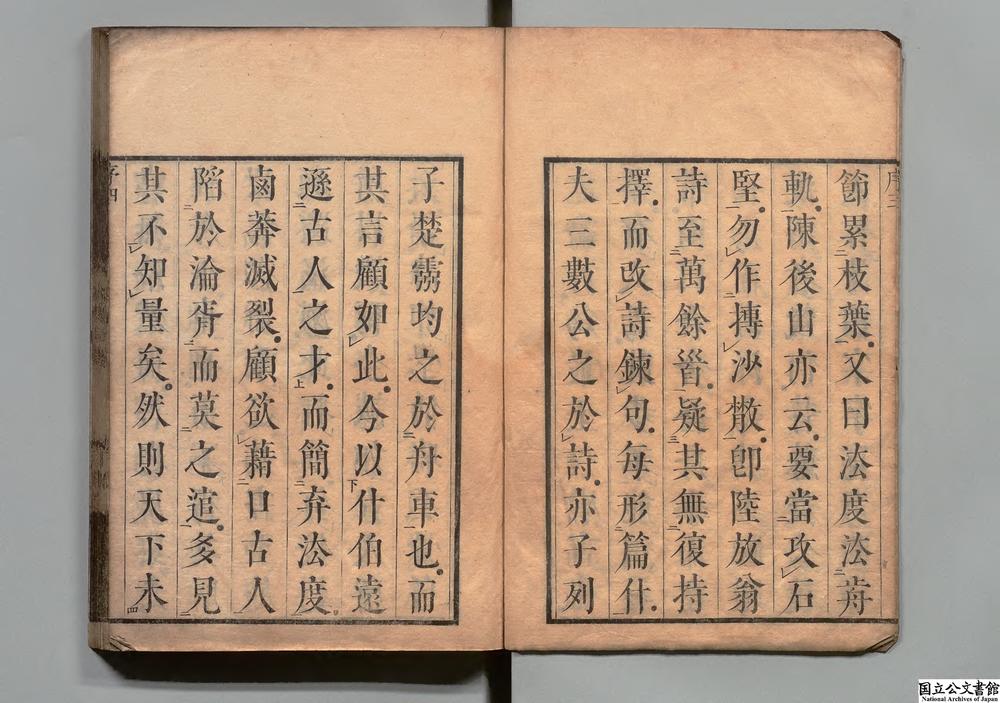 序三
節累枝葉又曰法度法前
軌陳後山亦云要當攻石
堅勿作摶沙散卽陸放翁
詩至萬餘首疑其無復持
擇而改詩鍊句每形篇什
夫三數公之於詩亦子列
子楚靈均之於舟車也而
其言顧如此今以什伯遠
遜古人之才而簡弃法度
鹵莽滅裂顧欲藉口古人
陷於淪胥而莫之逭多見
其不知量矣然則天下未
序四
国立公文書館
National Archives of Japan